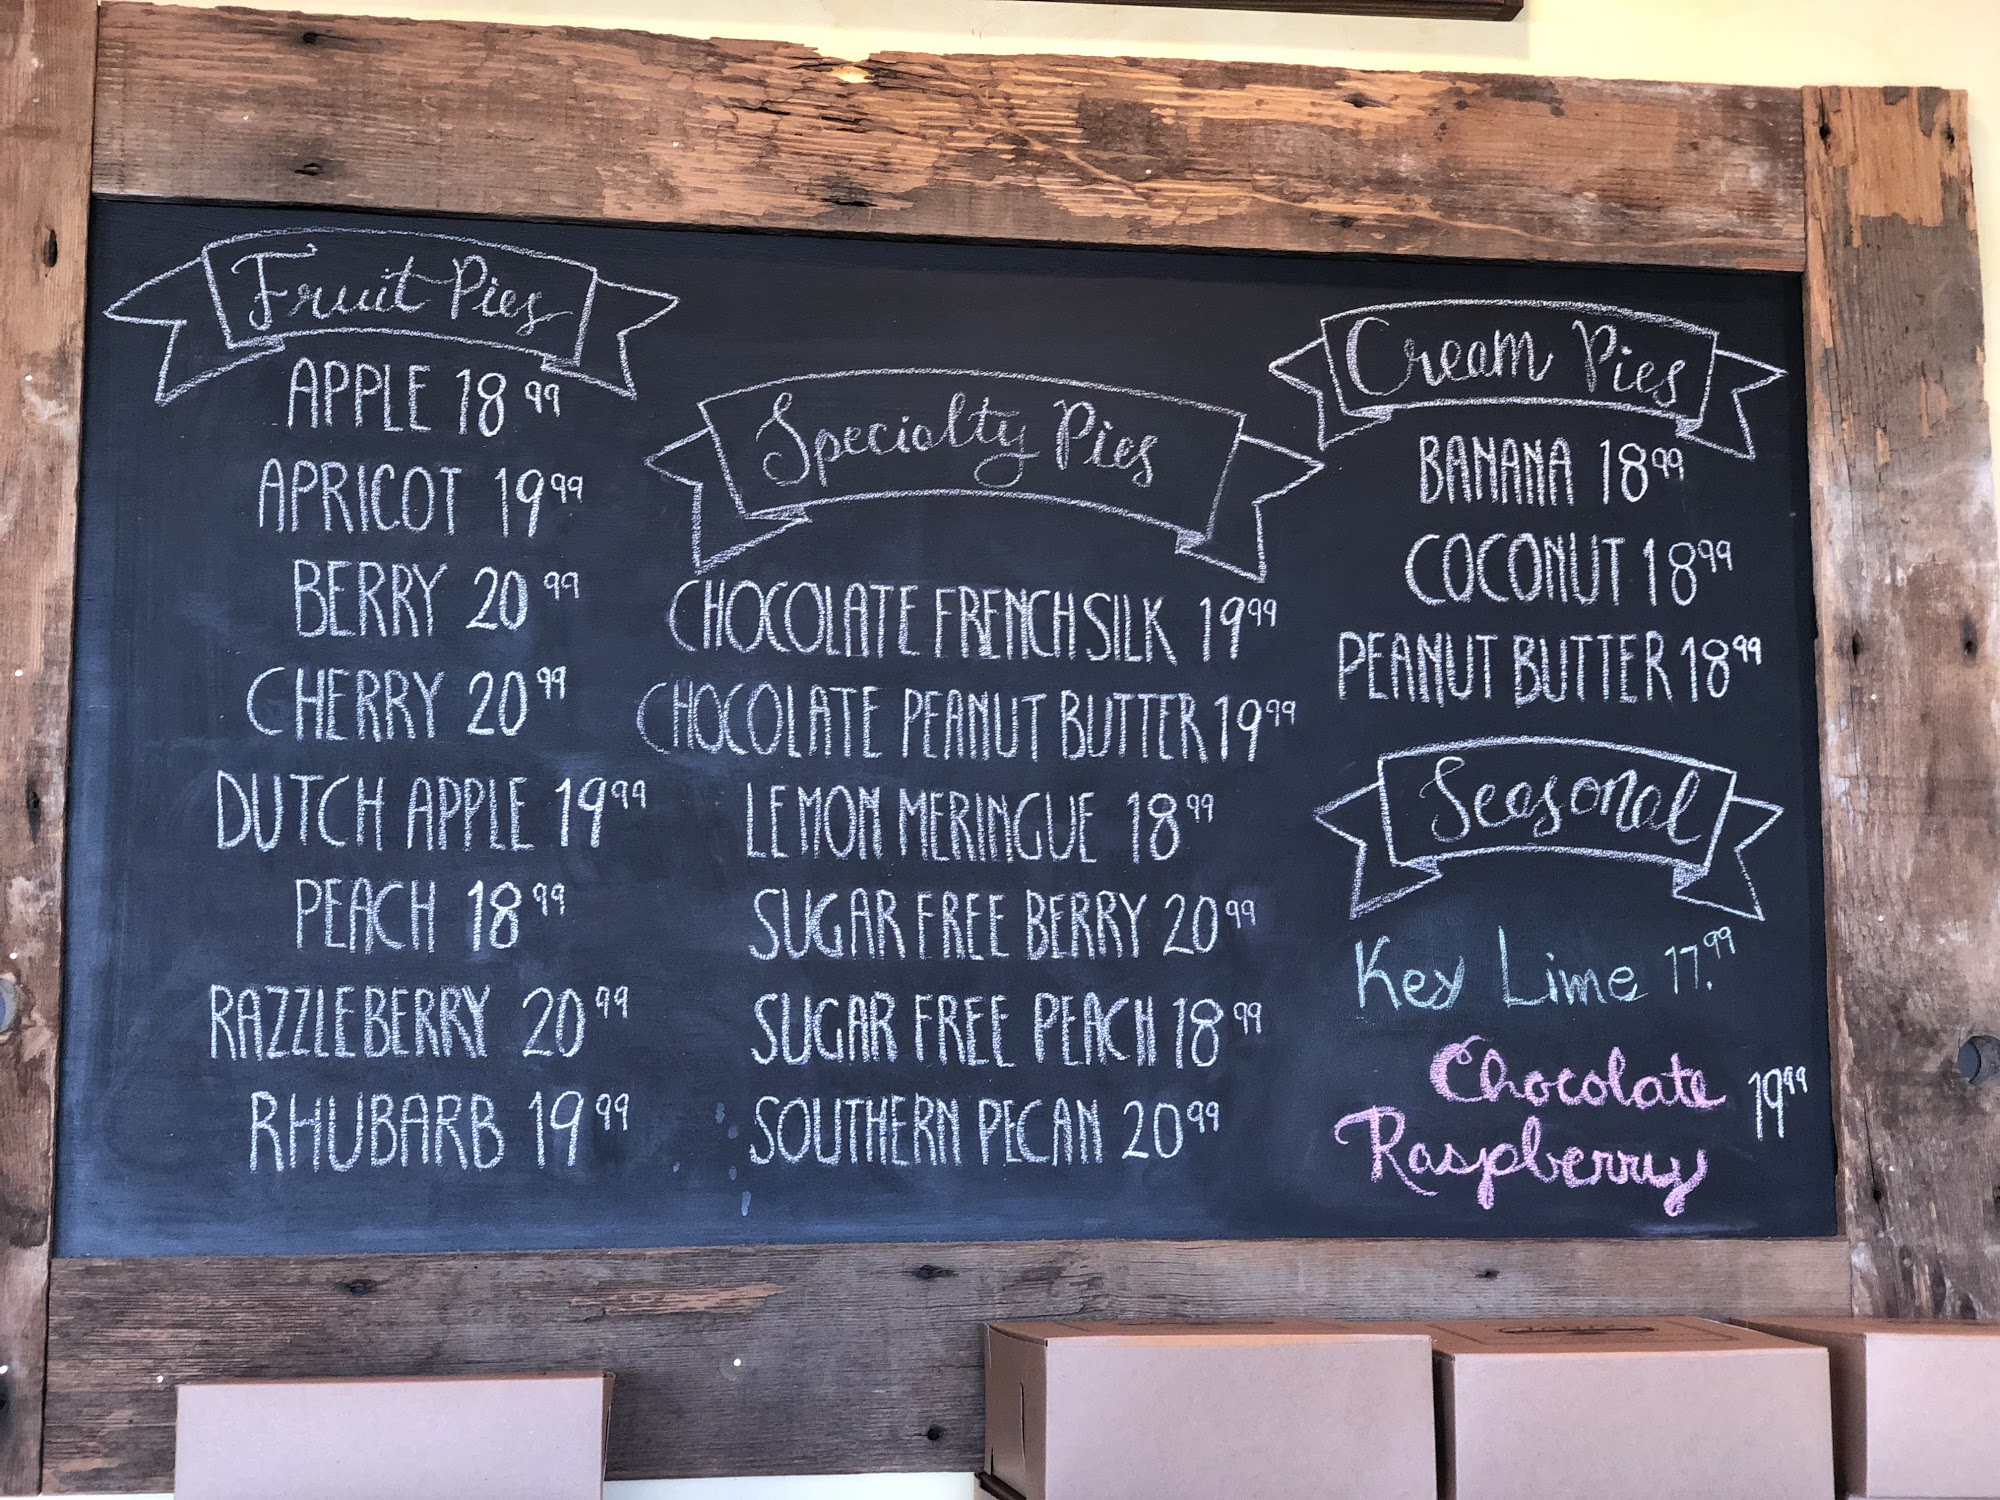 Fruit Pies
APPLE 18 99
APRICOT 19 99
BERRY 20 99
CHERRY 20 99
DUTCH APPLE 19 99
PEACH 18 99
RAZZLEBERRY 20 99
RHUBARB 19 99
Specialty Pies
CHOCOLATE FRENCH SILK 19 99
CHOCOLATE PEANUT BUTTER 19 99
LEMON MERINGUE 18 99
SUGAR FREE BERRY 20 99
SUGAR FREE PEACH 18 99
SOUTHERN PECAN 20 99
Cream Pies
BANANA 18 99
COCONUT 18 99
PEANUT BUTTER 18 99
Seasonal
Key Lime 17.99
Chocolate
Raspberry 19 99